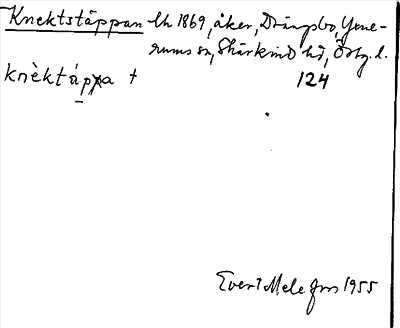 Knektstäppan lh 1869, åker, Drängsbo, Yxne-
rums sn, Skärkind hd, Östg. l.
knèktáppa † 124
Evert Melefors 1955